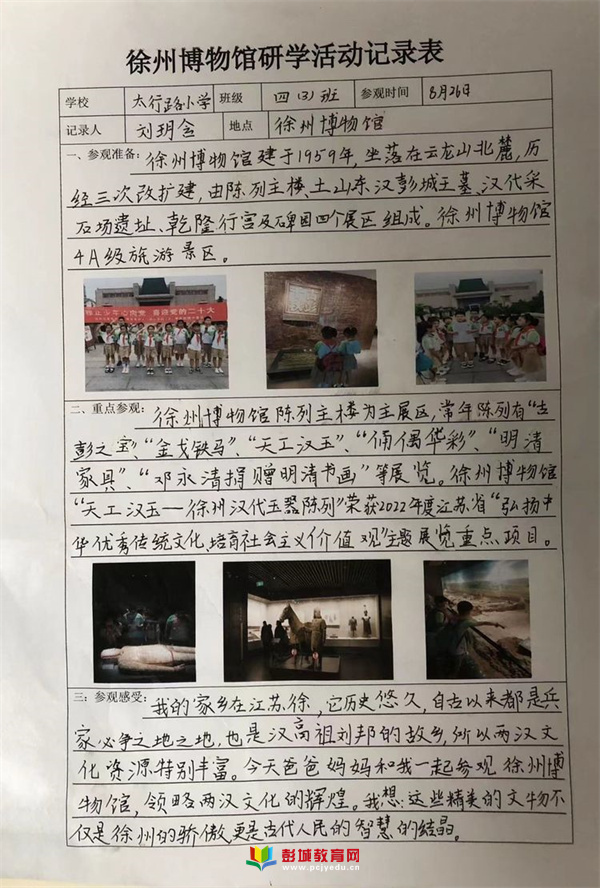 徐州博物馆研学活动记录表
学校 太行路小学 班级 四(3)班 参观时间 8月26日
记录人 刘玥含 地点 徐州博物馆
一、参观准备：徐州博物馆建于1959年，坐落在云龙山北麓，历
经三次改扩建，由陈列主楼、土山东汉彭城王墓、汉代采
石场遗址、乾隆行宫及碑园四个展区组成。徐州博物馆
4A级旅游景区。
二、重点参观：徐州博物馆陈列主楼为主展区，常年陈列有“古
彭之宝”、“金戈铁马”、“天工汉玉”、“俑偶华彩”、“明清
家具”、“邓永清捐赠明清书画”等展览。徐州博物馆
“天工汉玉——徐州汉代玉器陈列”荣获2022年度江苏省“弘扬中
华优秀传统文化、培育社会主义价值观”主题展览重点项目。
三：参观感受：我的家乡在江苏徐，它历史悠久，自古以来都是兵
家必争之地之地，也是汉高祖刘邦的故乡，所以两汉文
化资源特别丰富。今天爸爸妈妈和我一起参观徐州博
物馆，领略两汉文化的辉煌。我想：这些精美的文物不
仅是徐州的骄傲，更是古代人民的智慧的结晶。
彭城教育网
www.pcjyedu.cn